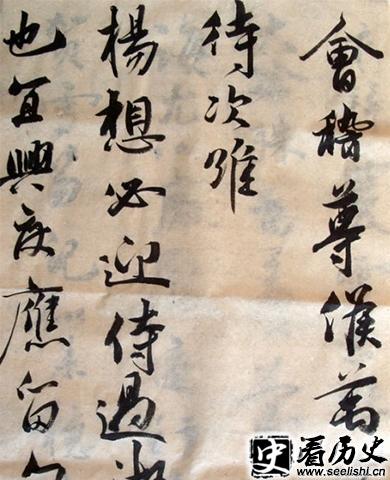 會稽尊候萬
侍次
楊想必迎侍過
也宜興度應留
史 看历史
www.seelishi.cn